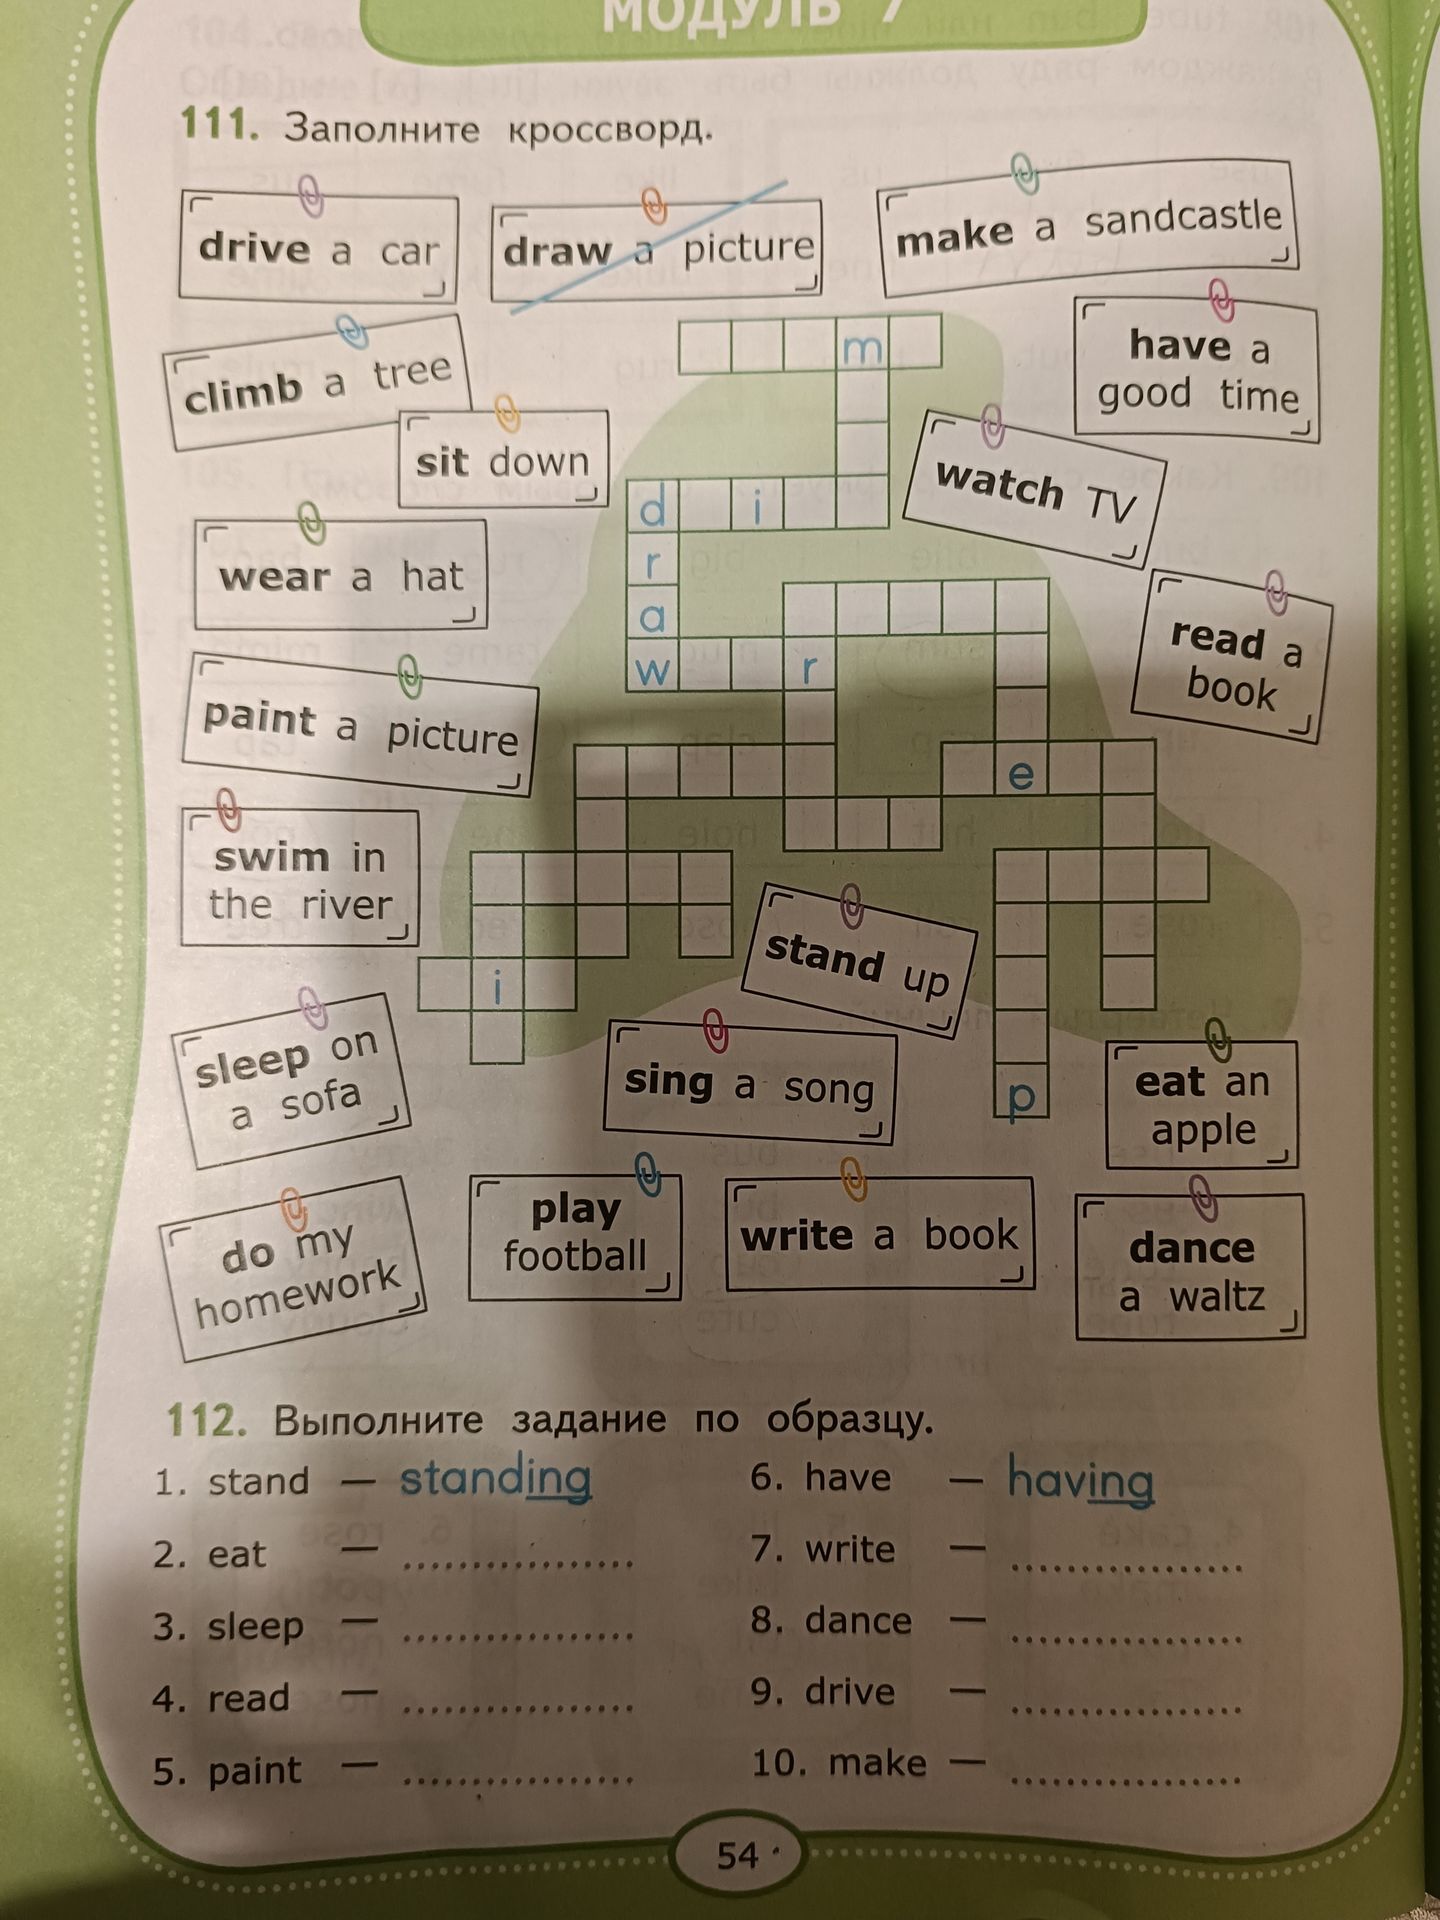 МОДУЛЬ 7
111. Заполните кроссворд.
drive a car
draw a picture
make a sandcastle
climb a tree
m
have a
good time
sit down
watch TV
d i
r
a
w r
wear a hat
read a
book
paint a picture
e
swim in
the river
stand up
i
sleep on
a sofa
sing a song
p
eat an
apple
do my
homework
play
football
write a book
dance
a waltz
112. Выполните задание по образцу.
1. stand — standing
2. eat — .................
3. sleep — .................
4. read — .................
5. paint — .................
6. have — having
7. write — .................
8. dance — .................
9. drive — .................
10. make — .................
54